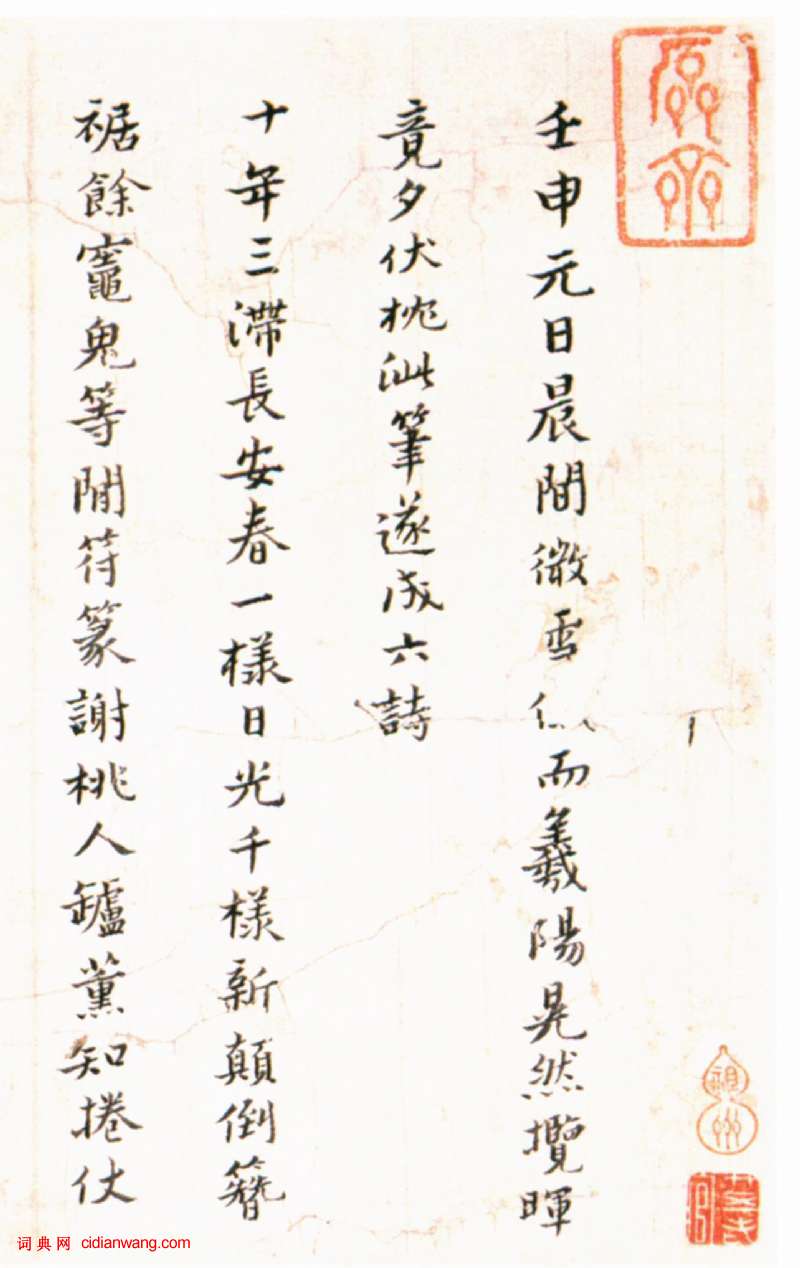 壬申元日晨間微雪而羲陽晃然攬暉
竟夕伏枕泚筆遂成六詩
十年三滯長安春一樣日光千樣新顛倒簪
裾餘竈鬼等閒符篆謝桃人罏薰知捲伏
词典网 cidianwang.com